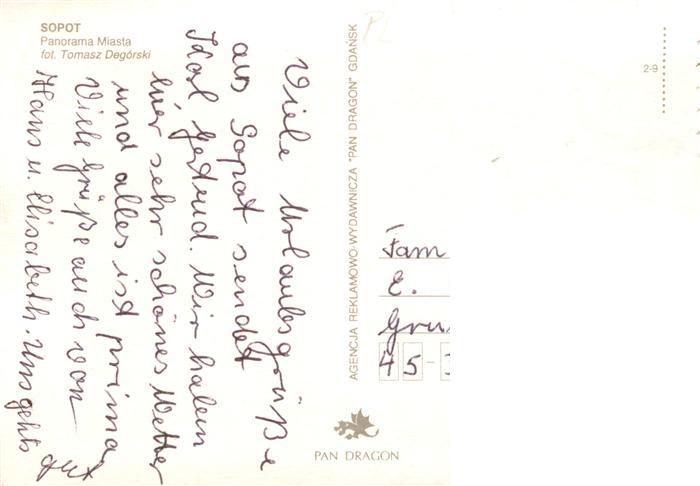 SOPOT
Panorama Miasta
fot. Tomasz Degórski
Viele Urlaubsgrüße
aus Sopot sendet
Gertrud. Wir haben
hier sehr schönes Wetter
und alles ist prima,
Viele Grüße auch von
Hans u. Elisabeth. Uns gehts
gut
AGENCJA REKLAMOWO-WYDAWNICZA "PAN DRAGON" GDAŃSK
PL
2-9
Fam
E.
Gru
45-
PAN DRAGON